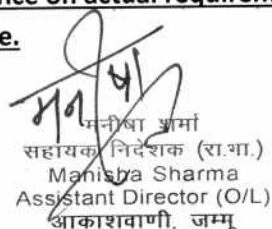 nce on actual requirem
e.
मनीषा
मनीषा शर्मा
सहायक निदेशक (रा.भा.)
Manisha Sharma
Assistant Director (O/L)
आकाशवाणी, जम्मू